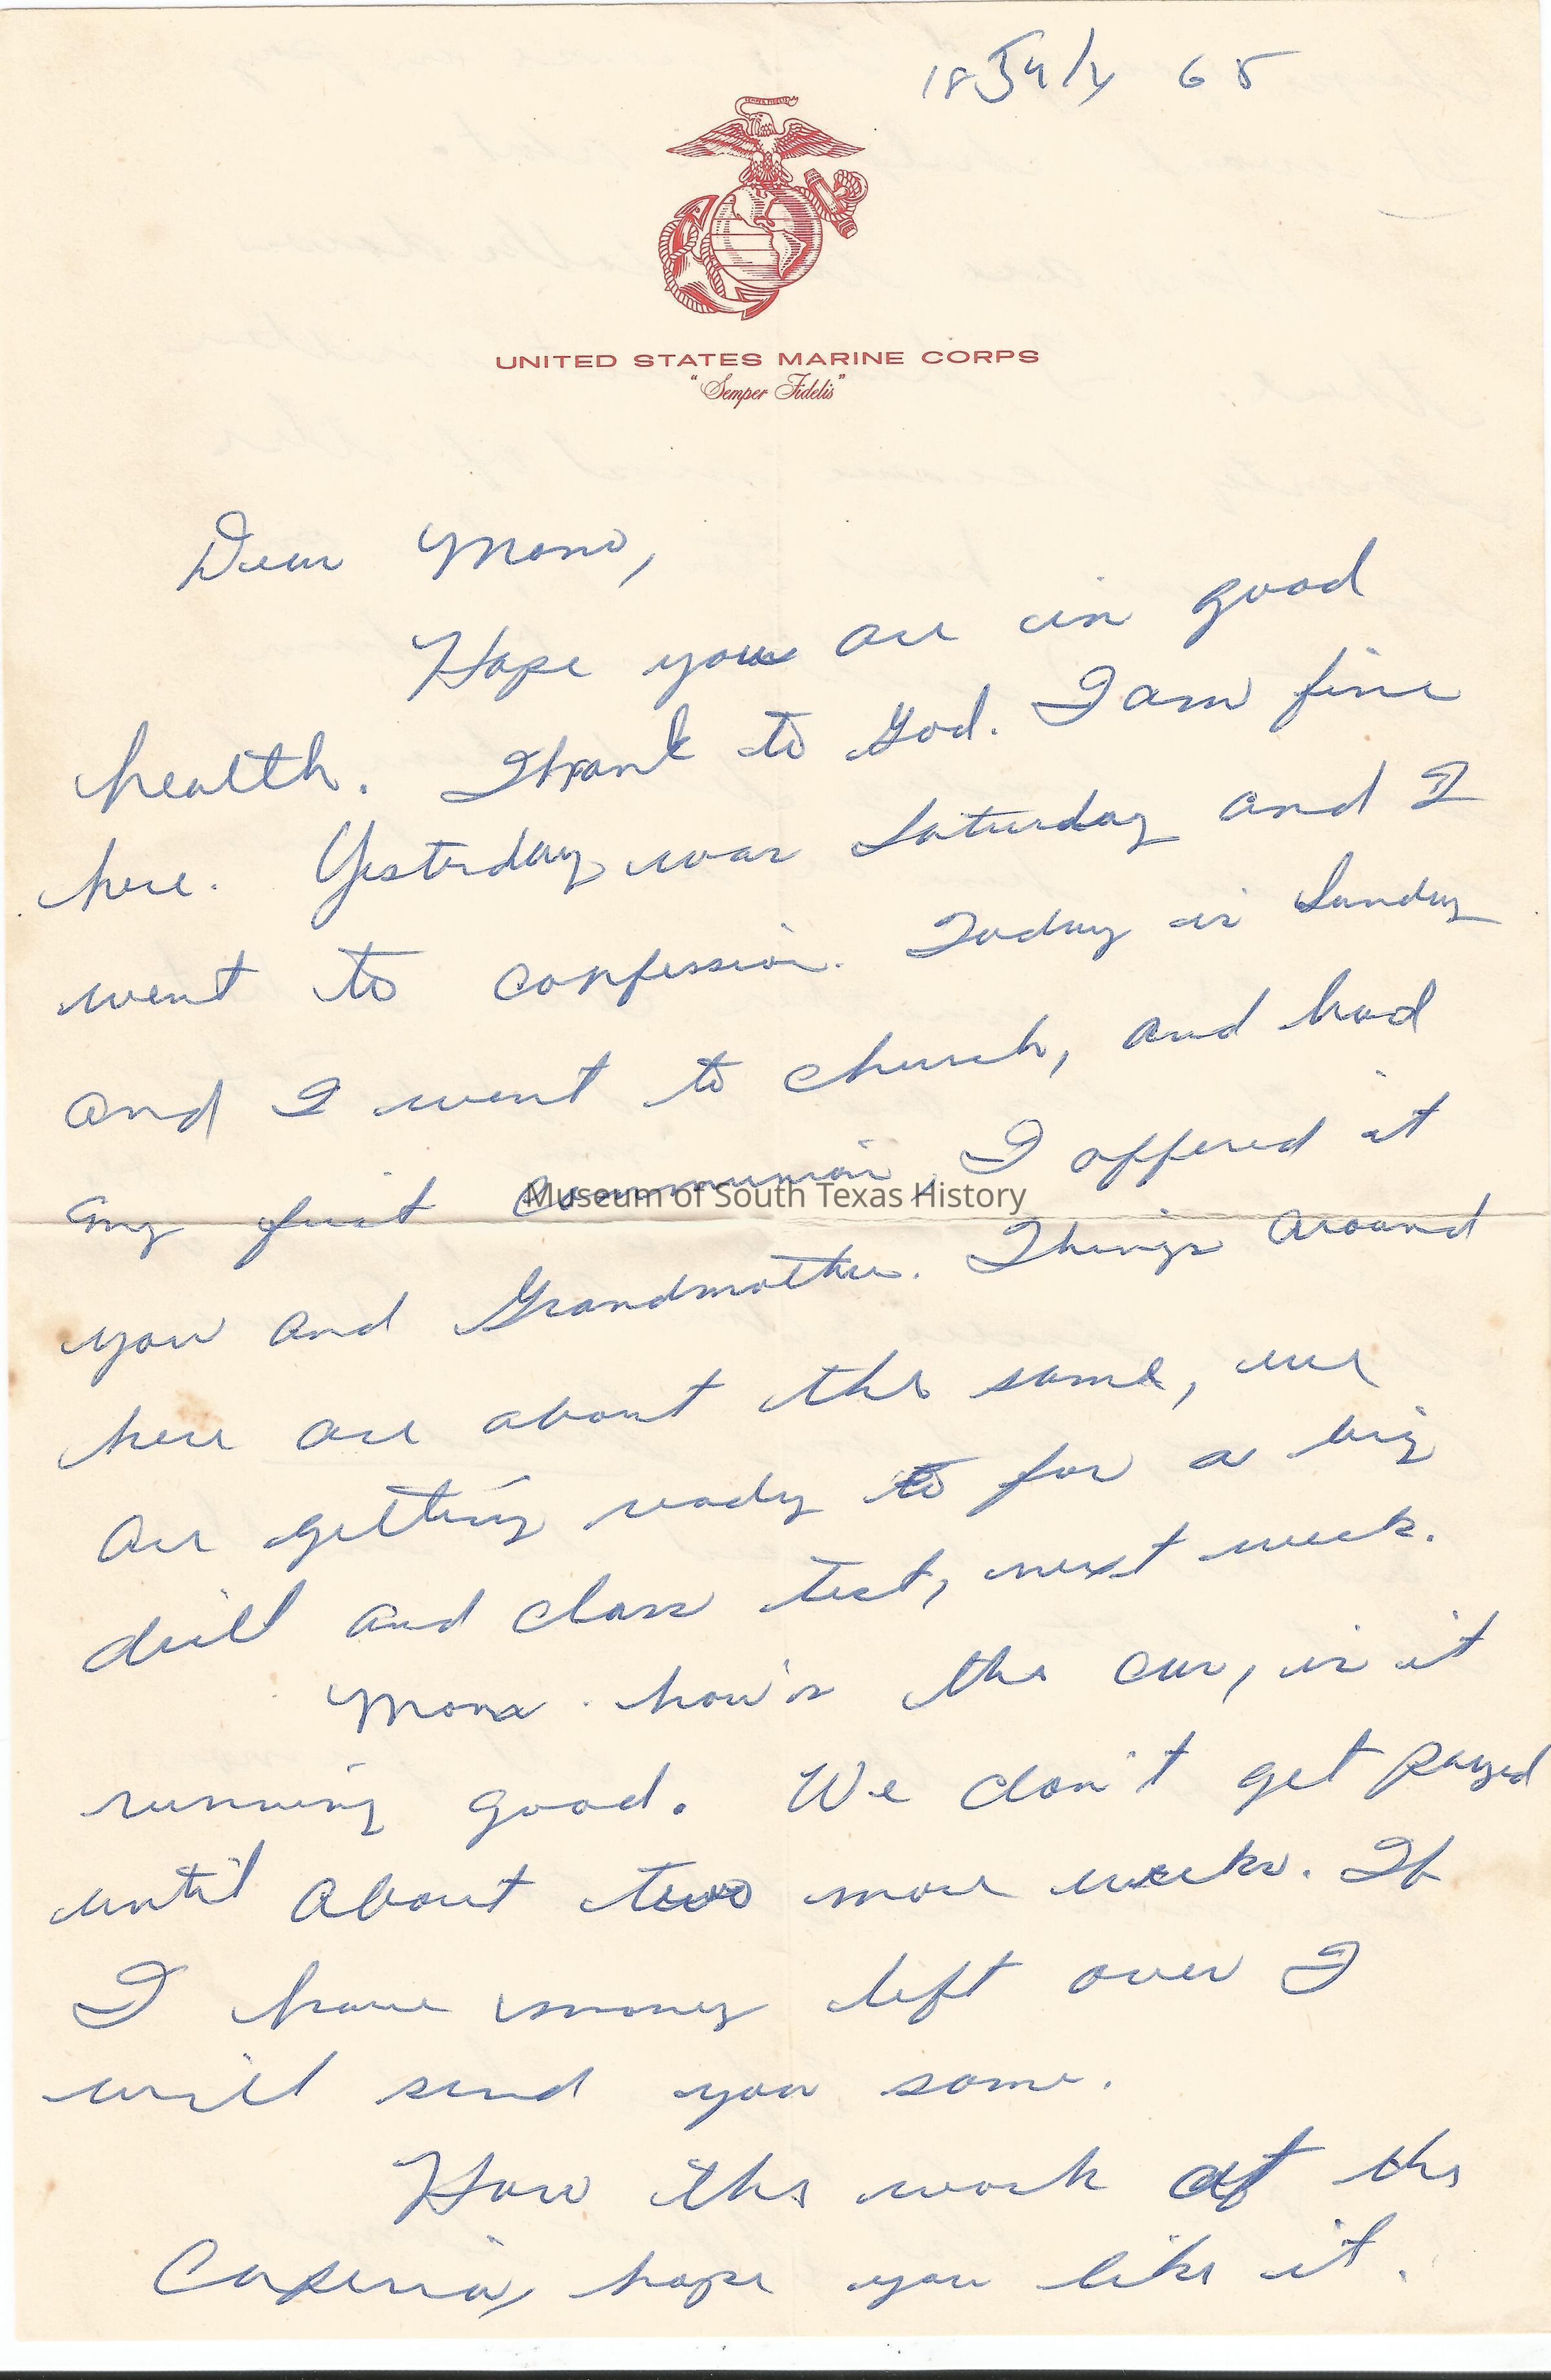 18 July 65
SEMPER FIDELIS
UNITED STATES MARINE CORPS
"Semper Fidelis"
Dear Mom,
Hope you are in good
health. Thank to God. I am fine
here. Yesterday was Saturday and I
went to confession. Today is Sunday
and I went to church, and had
my first communion, I offered it
Museum of South Texas History
you and Grandmother. Things around
here are about the same, we
are getting ready to for a big
drill and class test, next week.
Mom how's the car, is it
running good. We don't get payed
until about two more weeks. If
I have money left over I
will send you some.
How the work at the
hope you like it.